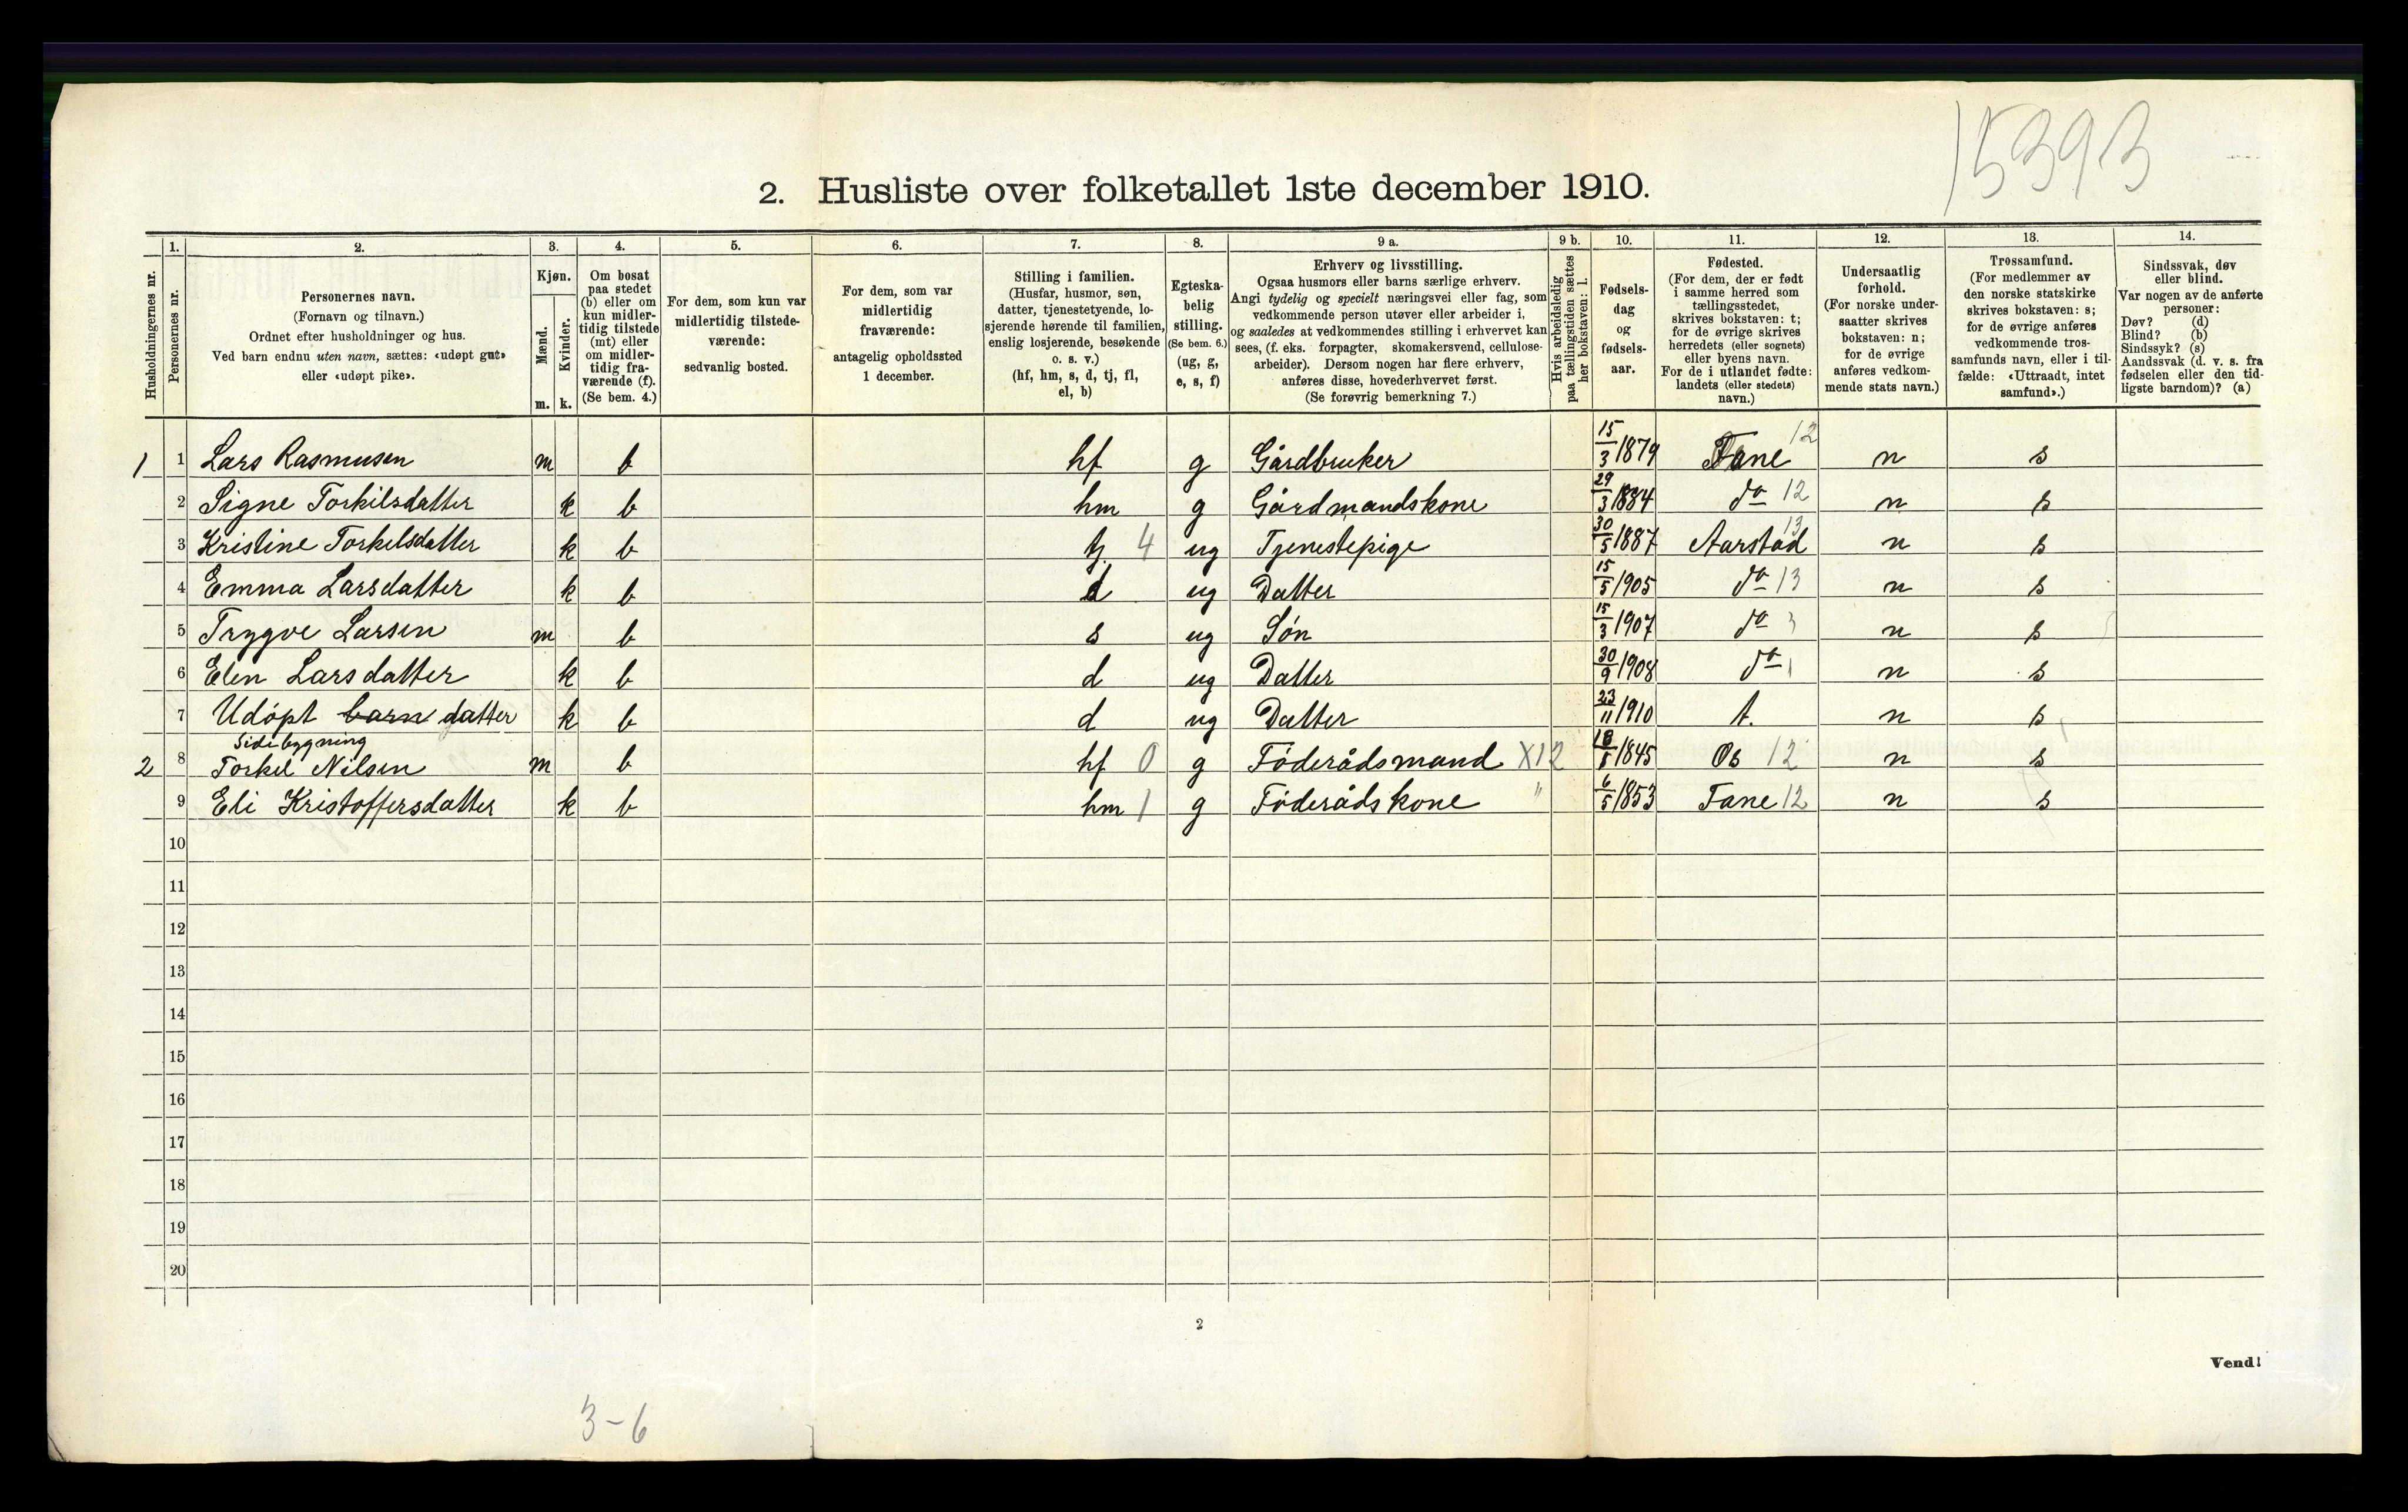 15393
2. Husliste over folketallet 1ste december 1910.
Husholdningernes nr.
1. Personernes nr.
2. Personernes navn. (Fornavn og tilnavn.) Ordnet efter husholdninger og hus. Ved barn endnu uten navn, sættes: «udøpt gut» eller «udøpt pike».
3. Kjøn. Mænd. m. Kvinder. k.
4. Om bosat paa stedet (b) eller om kun midlertidig tilstede (mt) eller om midlertidig fraværende (f). (Se bem. 4.)
5. For dem, som kun var midlertidig tilstedeværende: sedvanlig bosted.
6. For dem, som var midlertidig fraværende: antagelig opholdssted 1 december.
7. Stilling i familien. (Husfar, husmor, søn, datter, tjenestetyende, losjerende hørende til familien, enslig losjerende, besøkende o. s. v.) (hf, hm, s, d, tj, fl, el, b)
8. Egteskabelig stilling. (Se bem. 6.) (ug, g, e, s, f)
9 a. Erhverv og livsstilling. Ogsaa husmors eller barns særlige erhverv. Angi tydelig og specielt næringsvei eller fag, som vedkommende person utøver eller arbeider i, og saaledes at vedkommendes stilling i erhvervet kan sees, (f. eks. forpagter, skomakersvend, cellulosearbeider). Dersom nogen har flere erhverv, anføres disse, hovederhvervet først. (Se forøvrig bemerkning 7.)
9 b. Hvis arbeidsledig paa tællingstiden sættes her bokstaven: l.
10. Fødselsdag og fødselsaar.
11. Fødested. (For dem, der er født i samme herred som tællingsstedet, skrives bokstaven: t; for de øvrige skrives herredets (eller sognets) eller byens navn. For de i utlandet fødte: landets (eller stedets) navn.)
12. Undersaatlig forhold. (For norske undersaatter skrives bokstaven: n; for de øvrige anføres vedkommende stats navn.)
13. Trossamfund. (For medlemmer av den norske statskirke skrives bokstaven: s; for de øvrige anføres vedkommende trossamfunds navn, eller i tilfælde: «Uttraadt, intet samfund».)
14. Sindssvak, døv eller blind. Var nogen av de anførte personer: Døv? (d) Blind? (b) Sindssyk? (s) Aandssvak (d. v. s. fra fødselen eller den tidligste barndom)? (a)
1 1 Lars Rasmusen m b hf g Gårdbruker 15/3 1879 Fane 12 n s
2 Signe Torkilsdatter k b hm g Gårdmandskone 29/3 1884 do 12 n s
3 Kristine Torkelsdatter k b tj. 4 ug Tjenestepige 30/5 1887 Aarstad 13 n s
4 Emma Larsdatter k b d ug Datter 15/5 1905 do 13 n s
5 Trygve Larsen m b s ug Søn 15/3 1907 do 3 n s
6 Elen Larsdatter k b d ug Datter 30/9 1908 do 1 n s
7 Udøpt barn datter k b d ug Datter 23/11 1910 t. n s
Sidebygning
2 8 Torkel Nilsen m b hf 0 g Föderådsmand X12 18/5 1845 Os 12 n s
9 Eli Kristoffersdatter k b hm 1 g Föderådskone " 6/5 1853 Fane 12 n s
10
11
12
13
14
15
16
17
18
19
20
2
Vend!
3-6